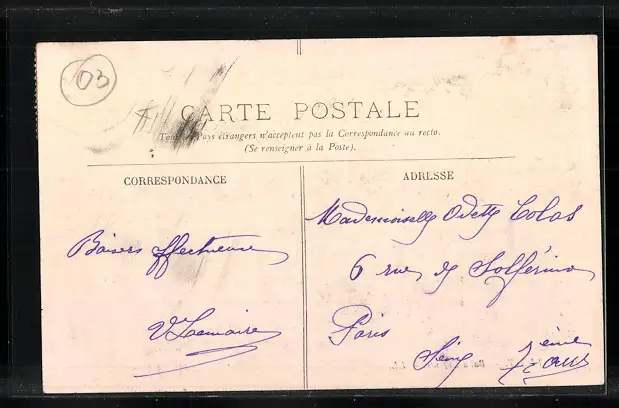 03
CARTE POSTALE
Tous les Pays étrangers n'acceptent pas la Correspondance au recto.
(Se renseigner à la Poste).
CORRESPONDANCE
ADRESSE
Mademoiselle Odette Colas
Baisers affectueux
6 rue de Solférino
Paris
V Lemaire
Seine 7ème